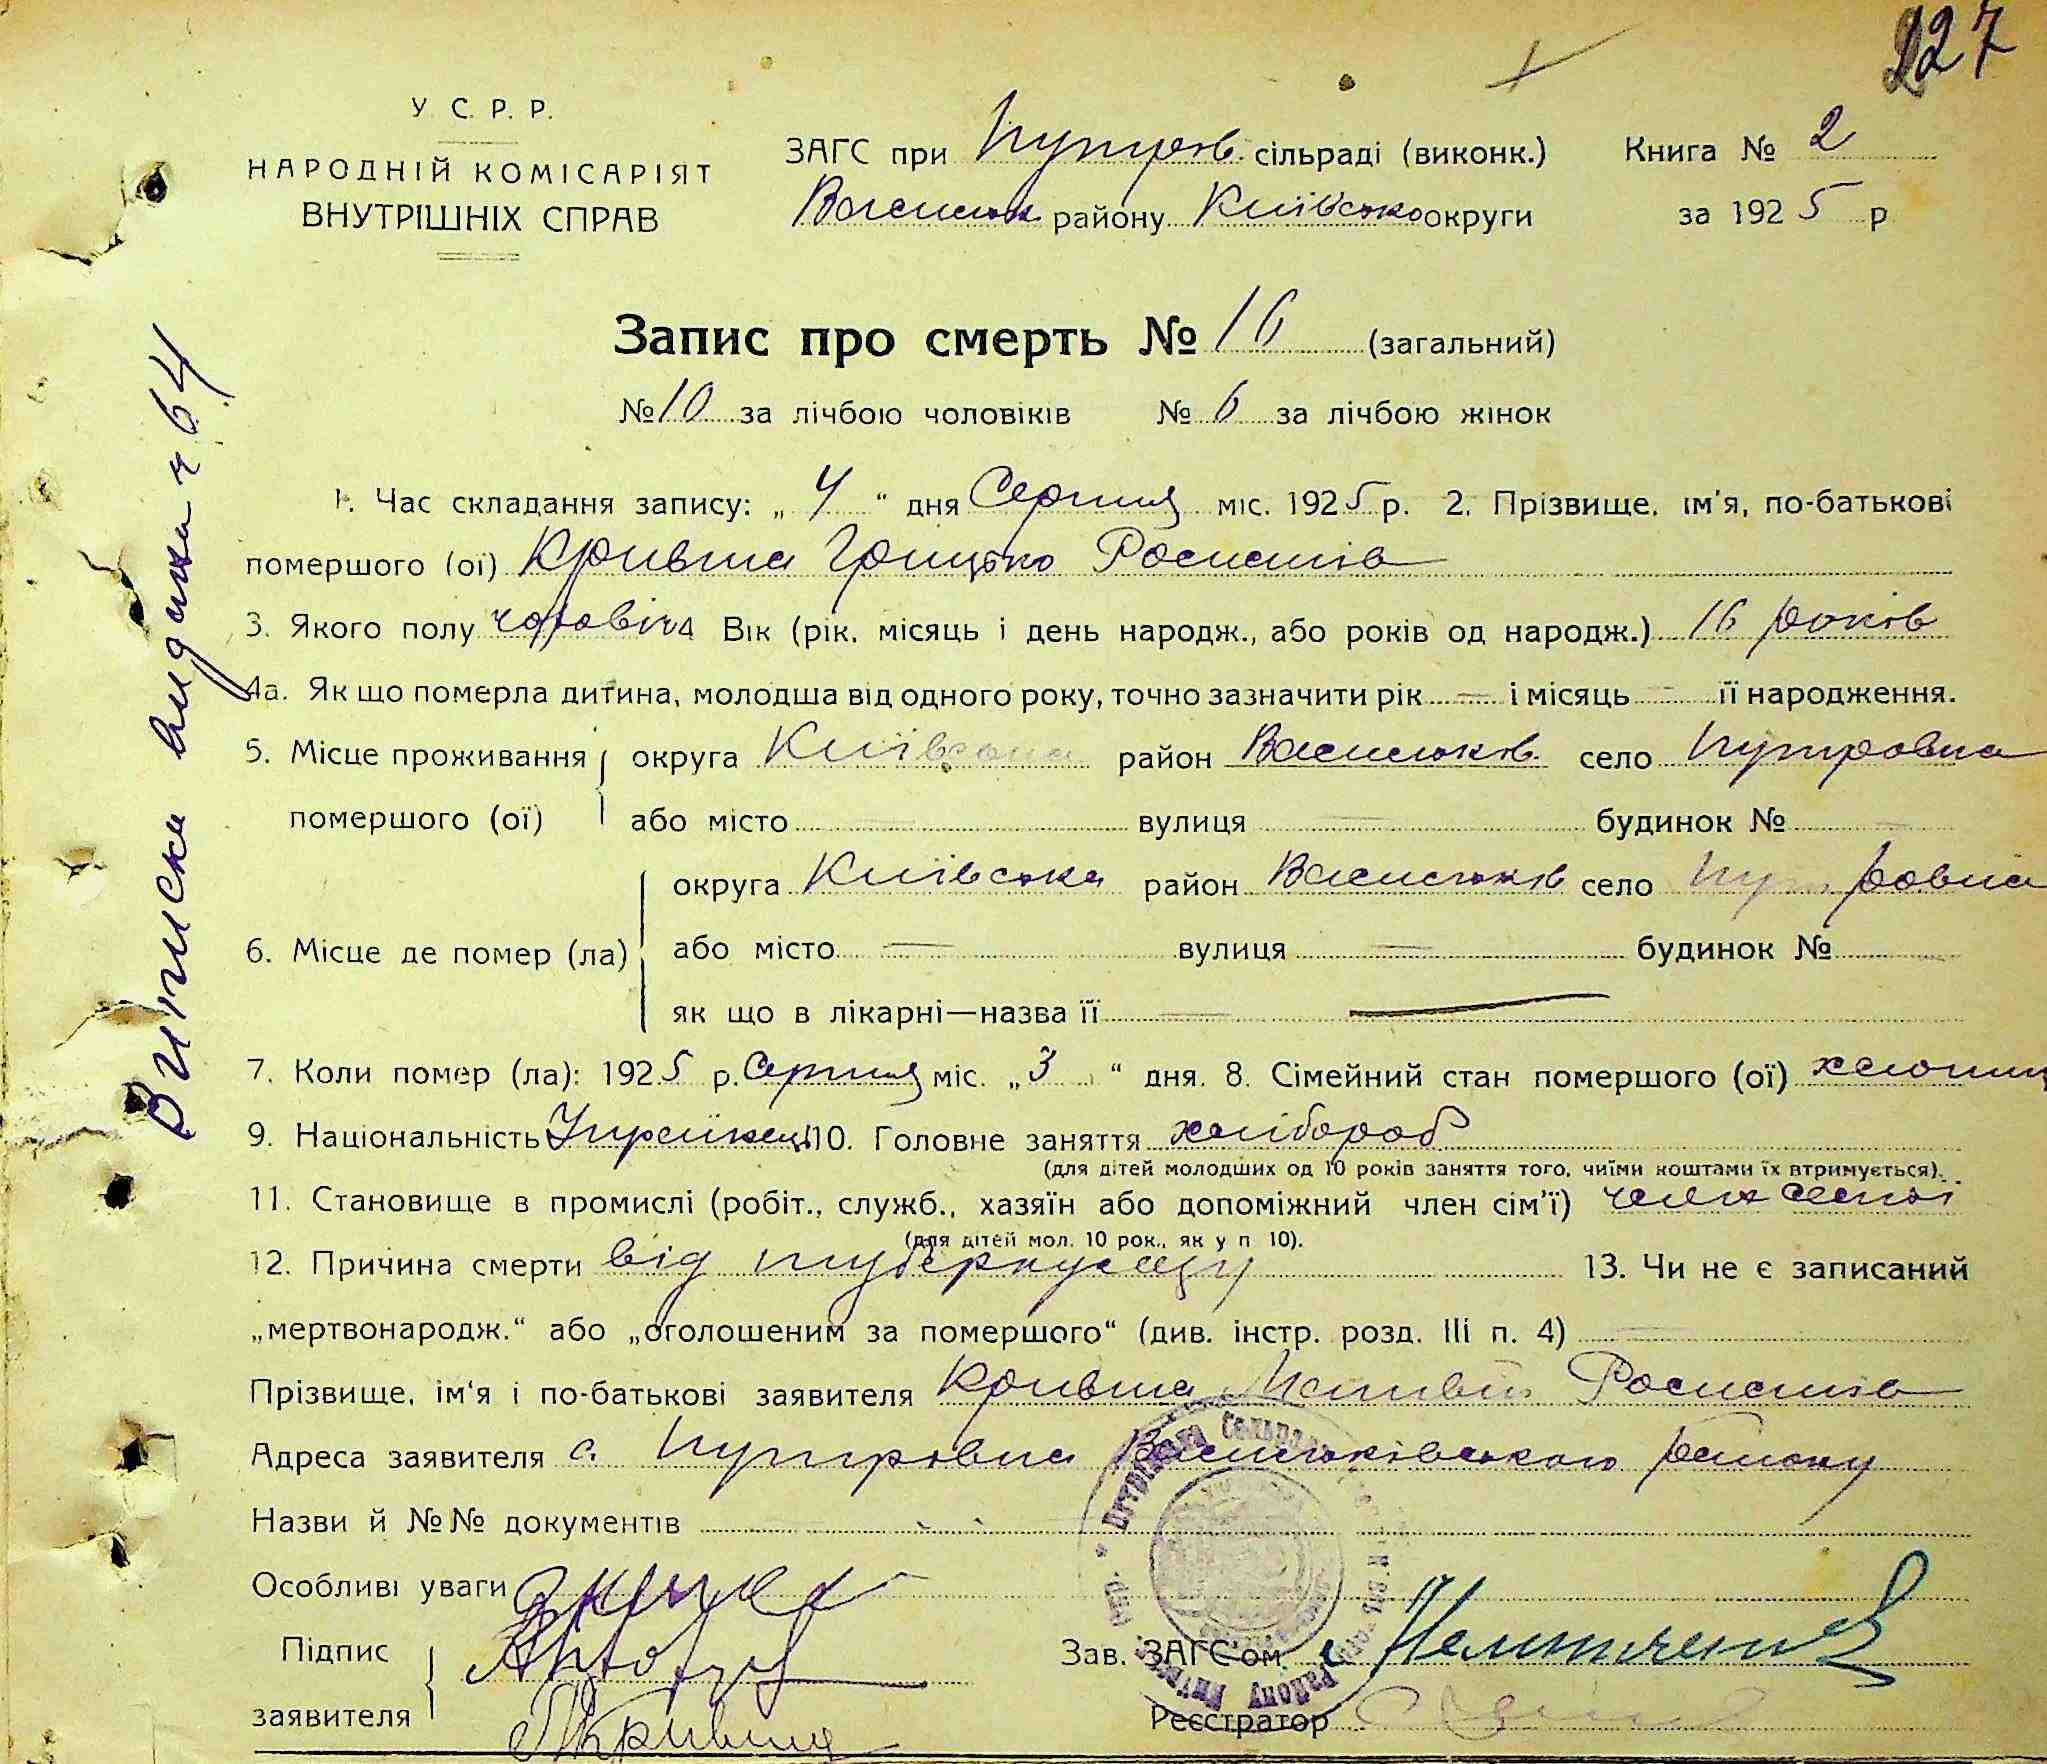 227
У. С. Р. Р.
НАРОДНІЙ КОМІСАРІЯТ
ВНУТРІШНІХ СПРАВ
ЗАГС при Путров. сільраді (виконк.) Книга № 2
Васильк району Київської округи за 1925 р
Запис про смерть № 16 (загальний)
№ 10 за лічбою чоловіків № 6 за лічбою жінок
1. Час складання запису: „ 4 “ дня Серпня міс. 1925 р. 2. Прізвище, ім'я, по-батькові
помершого (ої) Кривша Грицько
3. Якого полу чоловіч 4 Вік (рік, місяць і день народж., або років од народж.) 16 років
4а. Як що померла дитина, молодша від одного року, точно зазначити рік — і місяць — її народження.
5. Місце проживання помершого (ої) округа Київська район Васильків. село Путровка
або місто — вулиця — будинок № —
6. Місце де помер (ла) округа Київська район Васильків село Путровка
або місто — вулиця — будинок №
як що в лікарні—назва її —
7. Коли помер (ла): 1925 р. Серпня міс. „ 3 “ дня. 8. Сімейний стан помершого (ої) хлопець
9. Національність Українець 10. Головне заняття хлібороб
(для дітей молодших од 10 років заняття того, чиїми коштами їх втримується).
11. Становище в промислі (робіт., служб., хазяїн або допоміжний член сім'ї) член сем'ї
(для дітей мол. 10 рок., як у п 10).
12. Причина смерти від туберкульозу 13. Чи не є записаний
„мертвонародж.“ або „оголошеним за помершого“ (див. інстр. розд. III п. 4) —
Прізвище, ім'я і по-батькові заявителя Кривша Матвій
Адреса заявителя с. Путровка Васильківського району
Назви й №№ документів
Особливі уваги
Підпис
заявителя
Зав. ЗАГС'ом
Реєстратор
Виписка видана ч 64